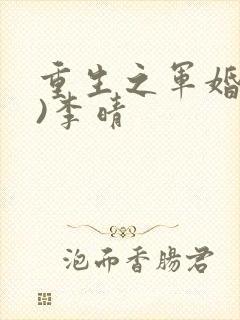 重生之军婚
)李晴
泡而香肠君